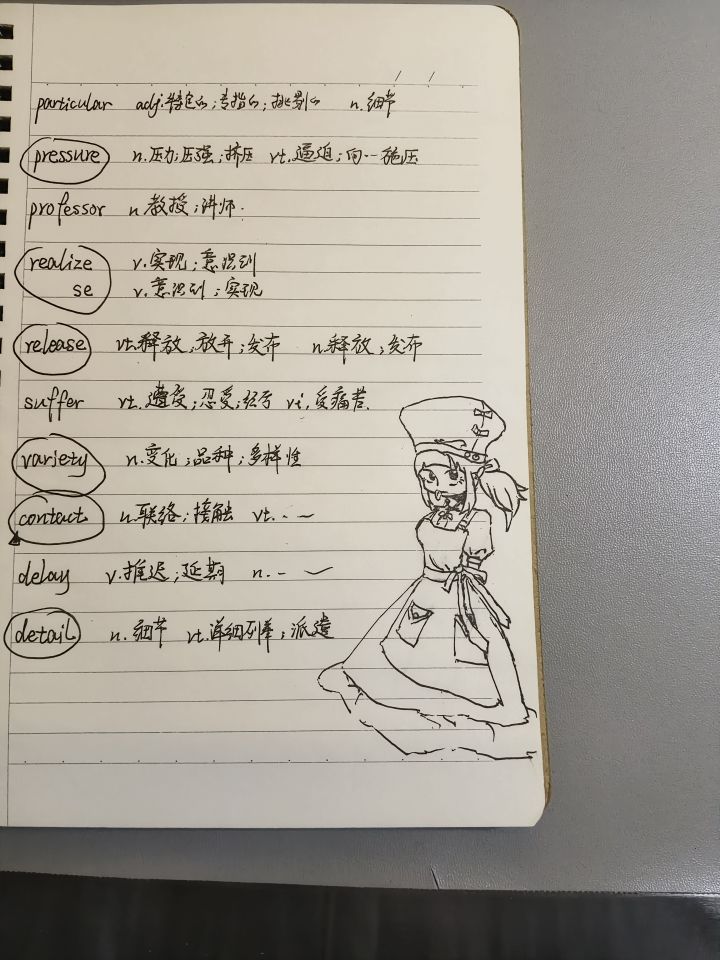 particular adj.特定的;专指的;挑剔的 n.细节
pressure n.压力;压强;挤压 vt.逼迫;向…施压
professor n.教授;讲师.
realize v.实现;意识到
se v.意识到;实现
release vt.释放;放开;发布 n.释放;发布
suffer vt.遭受;忍受;经历 vi.受痛苦.
variety n.变化;品种;多样性
contact n.联络;接触 vt.
delay v.推迟;延期 n.
detail n.细节 vt.详细列举;派遣